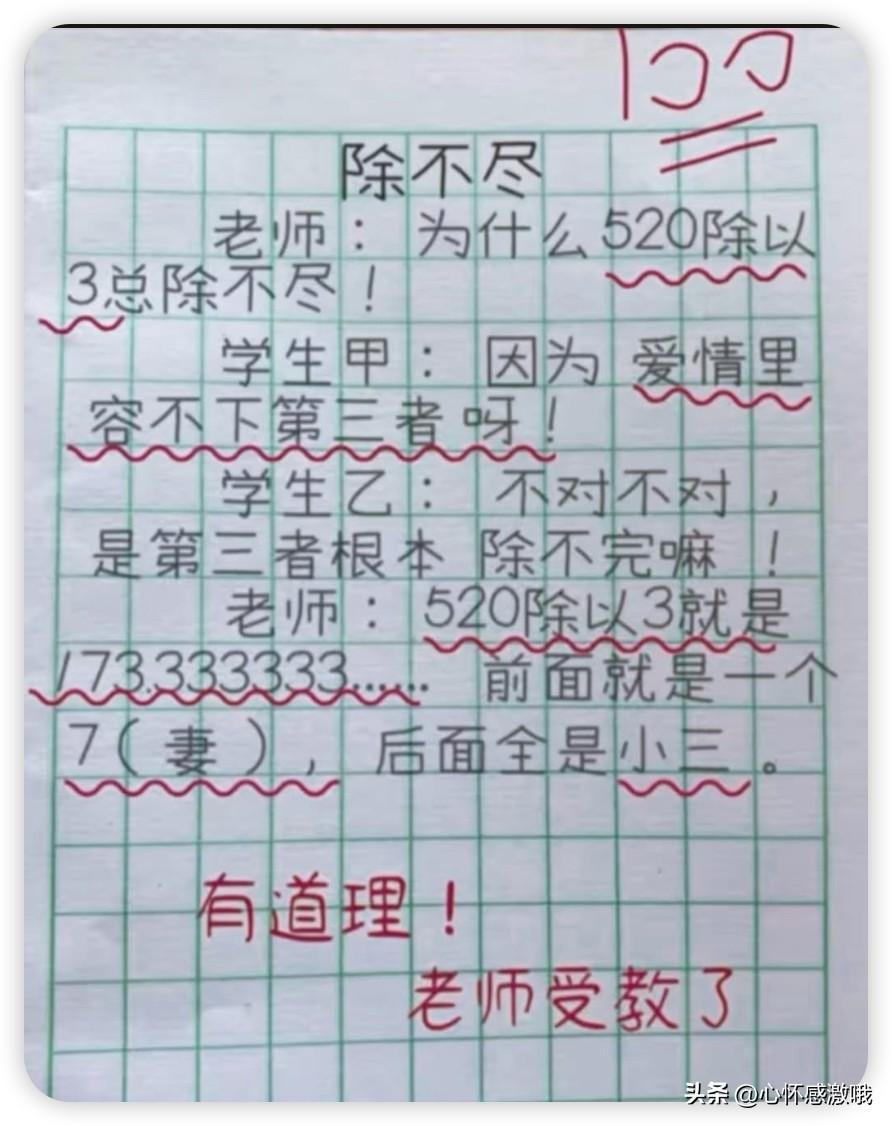 100
除不尽
老师：为什么520除以
3总除不尽！
学生甲：因为 爱情里
容不下第三者呀！
学生乙：不对不对，
是第三者根本 除不完嘛！
老师：520除以3就是
173.333333…… 前面就是一个
7（妻），后面全是小三。
有道理！
老师受教了
头条 @心怀感激哦